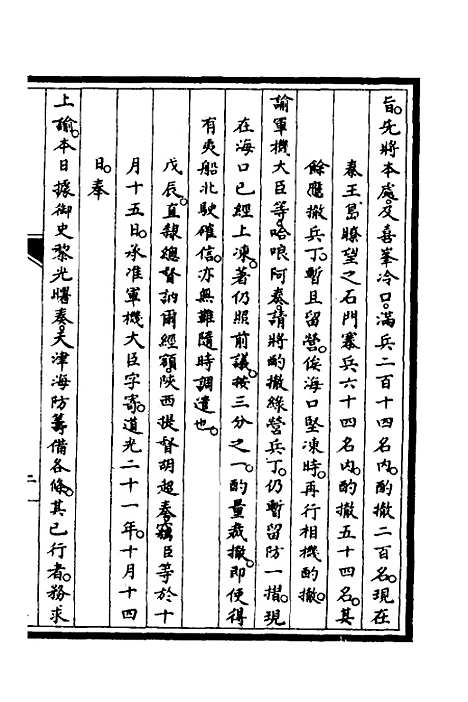 旨。先將本處及喜峯冷口。滿兵二百十四名內。酌撤二百名。現在
秦王島瞭望之石門寨兵六十四名內。酌撤五十四名。其
餘應撤兵丁。暫且留營。俟海口堅凍時。再行相機酌撤。
諭軍機大臣等。哈哴阿奏。請將酌撤綠營兵丁。仍暫留防一摺。現
在海口已經上凍。著仍照前議。按三分之一。酌量裁撤。即使得
有夷船北駛確信。亦無難隨時調遣也。
戊辰。直隸總督訥爾經額。陝西提督胡超奏。竊臣等於十
月十五日。承准軍機大臣字寄。道光二十一年。十月十四
日。奉
上諭。本日據御史黎光曙奏。天津海防籌備各條。其已行者。務求
二